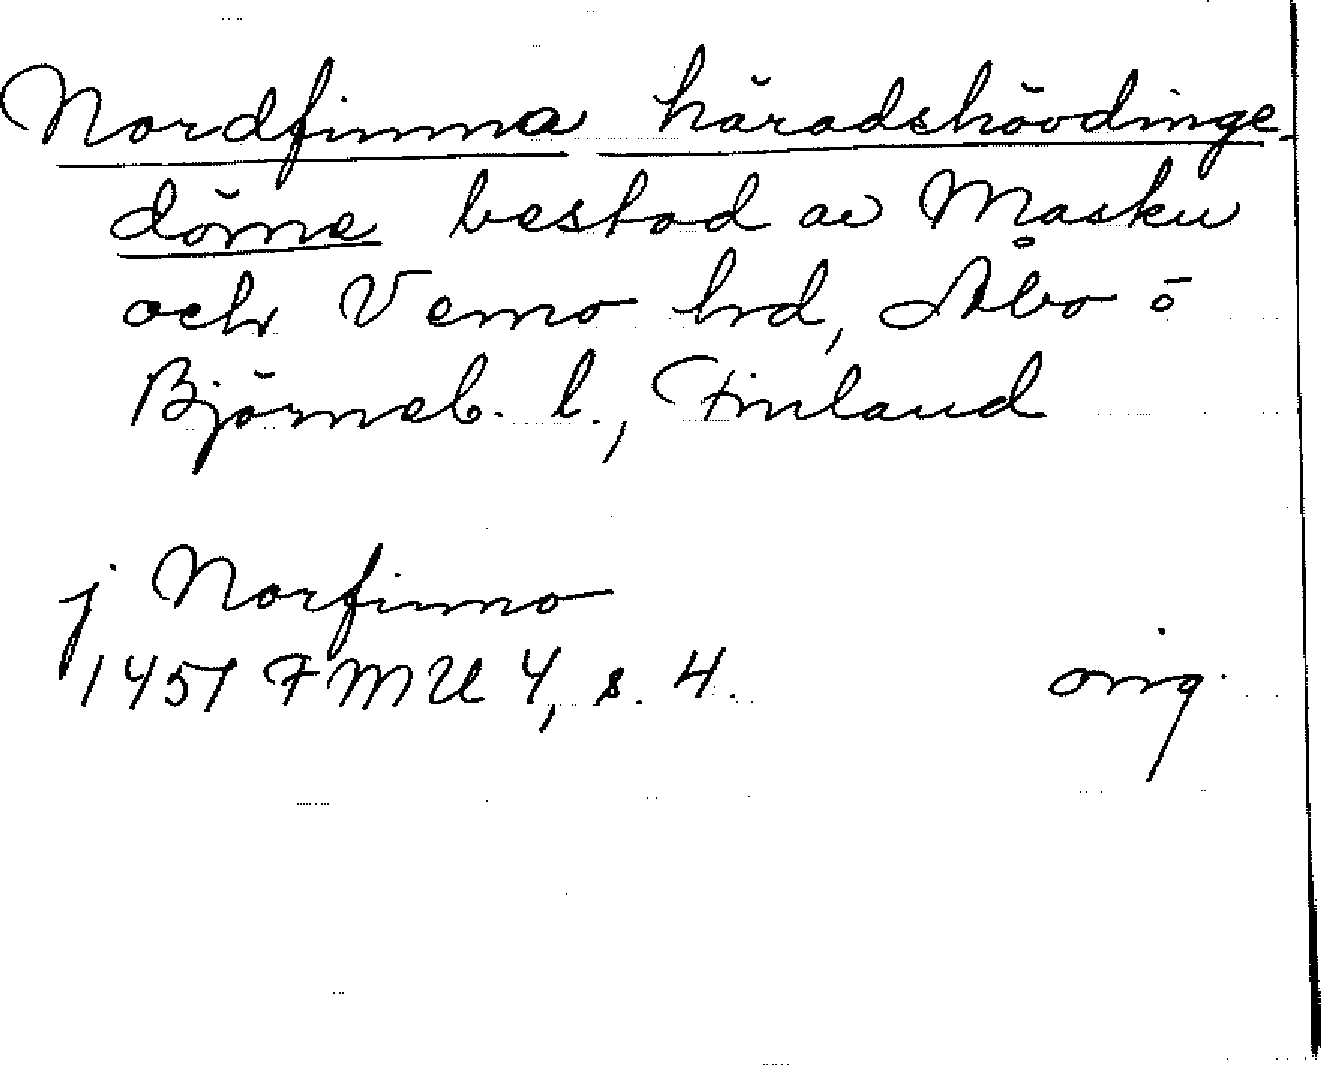 Nordfinna häradshövdinge-
döme bestod av Masku
och Vemo hrd, Åbo o
Björneb. l., Finland
j Norfinno
1451 FMU 4, s. 4.
orig.